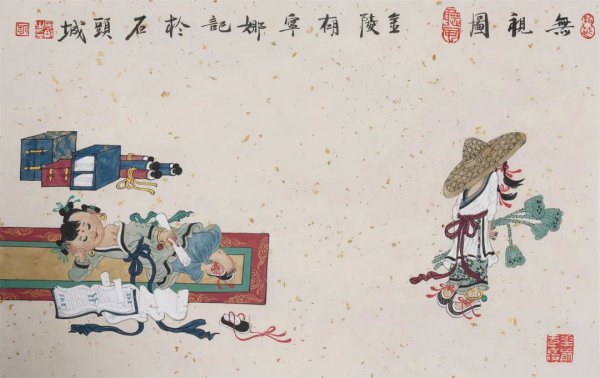 無視圖 金陵胡寧娜記於石頭城